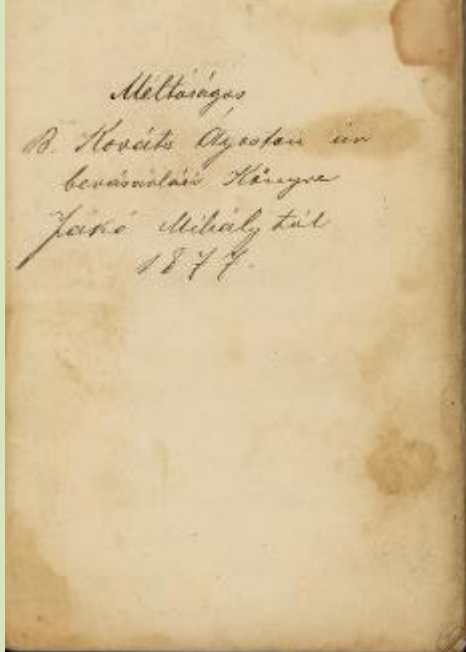 Méltóságos
B. Kováts Ágoston úr
bevásárlási Könyve
Jákó Mihálytól
1877.